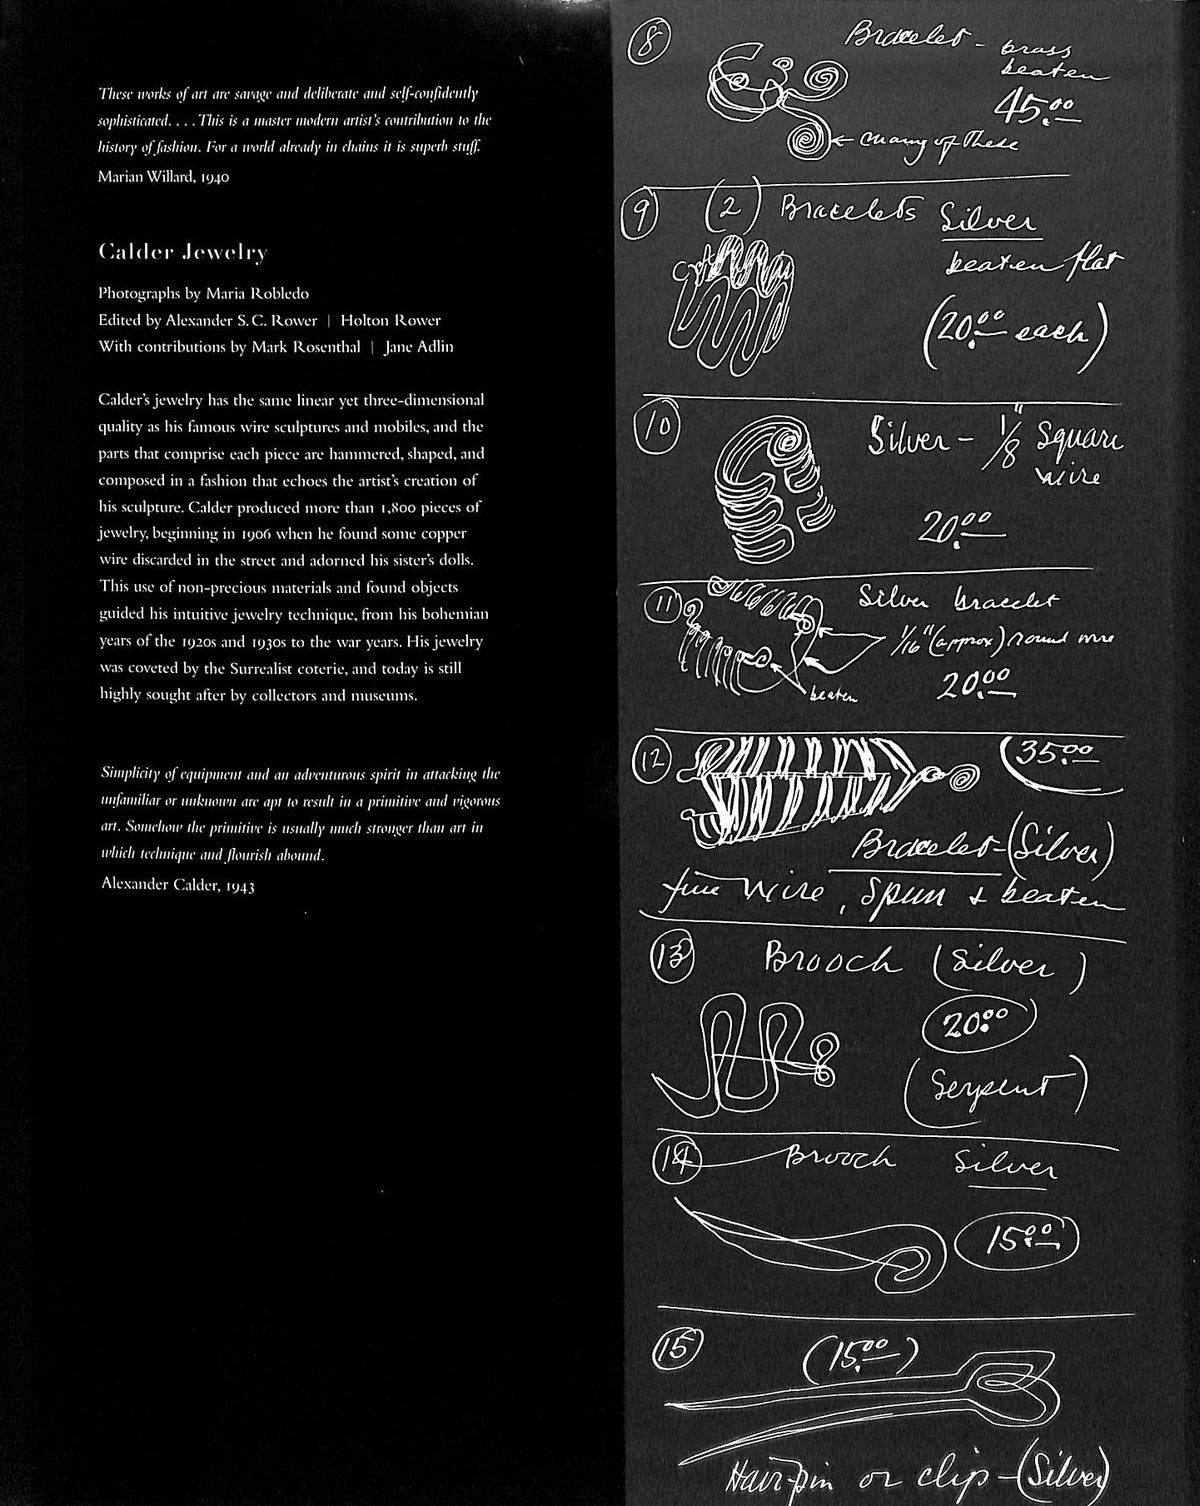 These works of art are savage and deliberate and self-confidently
sophisticated. . . . This is a master modern artist's contribution to the
history of fashion. For a world already in chains it is superb stuff.
Marian Willard, 1940
Calder Jewelry
Photographs by Maria Robledo
Edited by Alexander S. C. Rower | Holton Rower
With contributions by Mark Rosenthal | Jane Adlin
Calder's jewelry has the same linear yet three-dimensional
quality as his famous wire sculptures and mobiles, and the
parts that comprise each piece are hammered, shaped, and
composed in a fashion that echoes the artist's creation of
his sculpture. Calder produced more than 1,800 pieces of
jewelry, beginning in 1906 when he found some copper
wire discarded in the street and adorned his sister's dolls.
This use of non-precious materials and found objects
guided his intuitive jewelry technique, from his bohemian
years of the 1920s and 1930s to the war years. His jewelry
was coveted by the Surrealist coterie, and today is still
highly sought after by collectors and museums.
Simplicity of equipment and an adventurous spirit in attacking the
unfamiliar or unknown are apt to result in a primitive and vigorous
art. Somehow the primitive is usually much stronger than art in
which technique and flourish abound.
Alexander Calder, 1943
8 Bracelet - brass
beaten
45.00
many of these
9 (2) Bracelets Silver
beaten flat
(20.00 each)
10 Silver - 1/8" Square
wire
20.00
11 Silver bracelet
1/16" (approx) round wire
20.00
beaten
12 35.00
Bracelet - (Silver)
fine wire, spun & beaten
13 Brooch (Silver)
20.00
(Serpent)
14 Brooch Silver
15.00
15 (15.00)
Hair-pin or clip - (Silver)